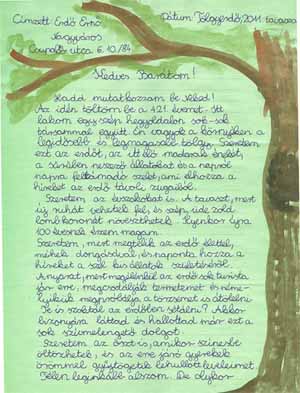 Címzett Erdő Ernő Dátum Tölgyesdő, 2011. tavasza
Nagyváros
Csupafűz utca 6. 10/84
Kedves Barátom!
Hadd mutatkozzam be Neked!
Az idén töltöm be a 421. évemet. Itt
lakom egy szép hegyoldalon sok-sok
társammal együtt. Én vagyok a környéken a
legidősebb és legmagasabb tölgy. Szeretem
ezt az erdőt, az itt élő madarak énekét,
a sűrűben neszező állatokat és a napról
napra feltámadó szelet, ami elhozza a
híreket az erdő távoli zugaiból.
Szeretem az évszakokat is. A tavaszt, mert
új ruhát ölthetek fel, és szép, üde zöld
lombkoronát növeszthetek. Ilyenkor újra
100 évesnek érzem magam.
Szeretem, mert megtelik az erdő élettel,
méhek dongásával, és naponta hozza a
híreket a szél kisállatok születéséről.
A nyarat, mert megélénkül az erdő, sok turista
jár erre, megcsodálják termetemet és néme-
lyikük megpróbálja a törzsemet is átölelni.
Te is szoktál az erdőben sétálni? Akkor
bizonyára láttad és hallottad már ezt a
sok szívmelengető dolgot.
Szeretem az őszt is, amikor színesbe
öltözhetek, és az erre járó gyerekek
örömmel gyűjtögetik lehullott leveleimet.
Télen leginkább alszom. De olykor